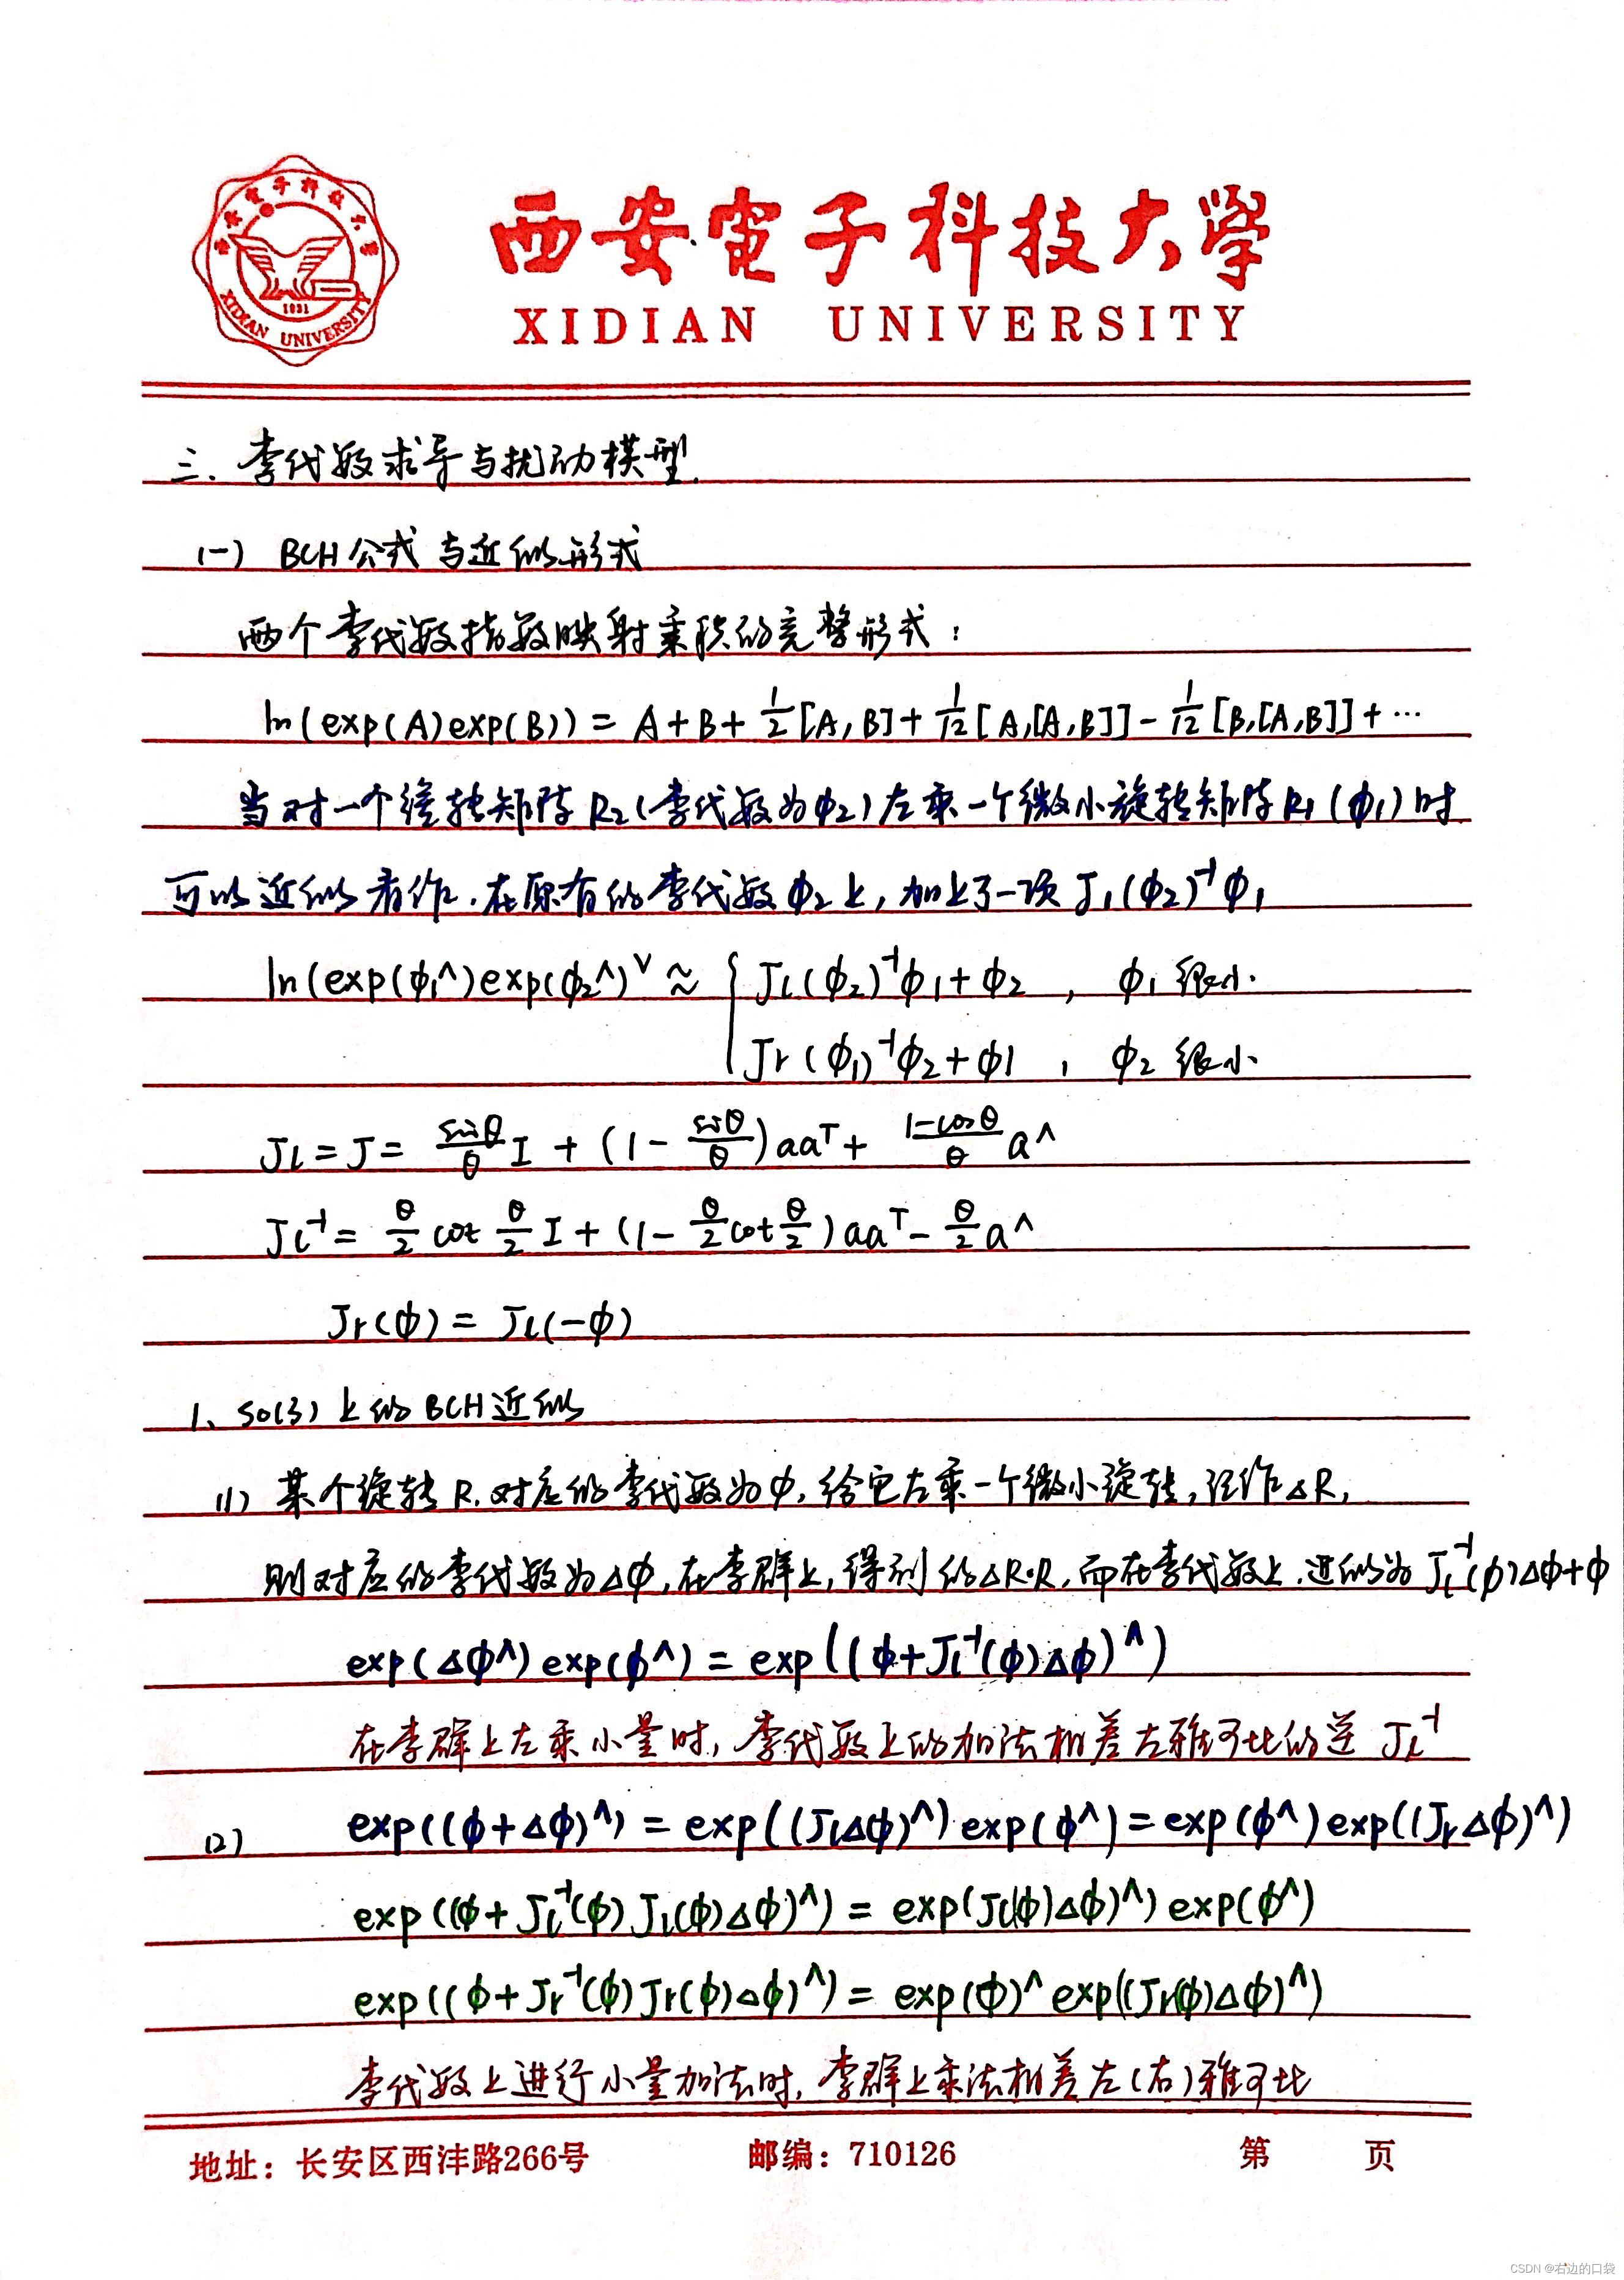 西安電子科技大学
XIDIAN UNIVERSITY
西安电子科技大学
1931
XIDIAN UNIVERSITY
三、李代数求导与扰动模型.
(一) BCH公式与近似形式
两个李代数指数映射乘积的完整形式：
ln(exp(A)exp(B)) = A + B + 1/2 [A, B] + 1/12 [A,[A,B]] - 1/12 [B,[A,B]] + ···
当对一个旋转矩阵R₂(李代数为φ₂)左乘一个微小旋转矩阵R₁(φ₁)时
可以近似看作，在原有的李代数φ₂上，加上了一项 J₁(φ₂)⁻¹φ₁
ln(exp(φ₁^)exp(φ₂^)^∨ ≈ { Jl(φ₂)⁻¹φ₁+φ₂ , φ₁很小.
Jr(φ₁)⁻¹φ₂+φ1 , φ₂很小.
Jl = J = sinθ/θ I + (1 - sinθ/θ)aaᵀ + 1-cosθ/θ a^
Jl⁻¹ = θ/2 cot θ/2 I + (1 - θ/2 cot θ/2)aaᵀ - θ/2 a^
Jr(φ) = Jl(-φ)
1、SO(3)上的BCH近似
(1) 某个旋转R，对应的李代数为φ，给它左乘一个微小旋转，记作ΔR，
则对应的李代数为Δφ，在李群上，得到的ΔR·R，而在李代数上，近似为Jl⁻¹(φ)Δφ+φ
exp(Δφ^)exp(φ^) = exp((φ+Jl⁻¹(φ)Δφ)^)
在李群上左乘小量时，李代数上的加法相差左雅可比的逆 Jl⁻¹
(2) exp((φ+Δφ)^) = exp((JlΔφ)^)exp(φ^) = exp(φ^)exp((JrΔφ)^)
exp((φ+Jl⁻¹(φ)Jl(φ)Δφ)^) = exp(Jl(φ)Δφ)^)exp(φ^)
exp((φ+Jr⁻¹(φ)Jr(φ)Δφ)^) = exp(φ)^exp((Jr(φ)Δφ)^)
李代数上进行小量加法时，李群上乘法相差左(右)雅可比
地址：长安区西沣路266号 邮编：710126 第 页
CSDN @右边的口袋